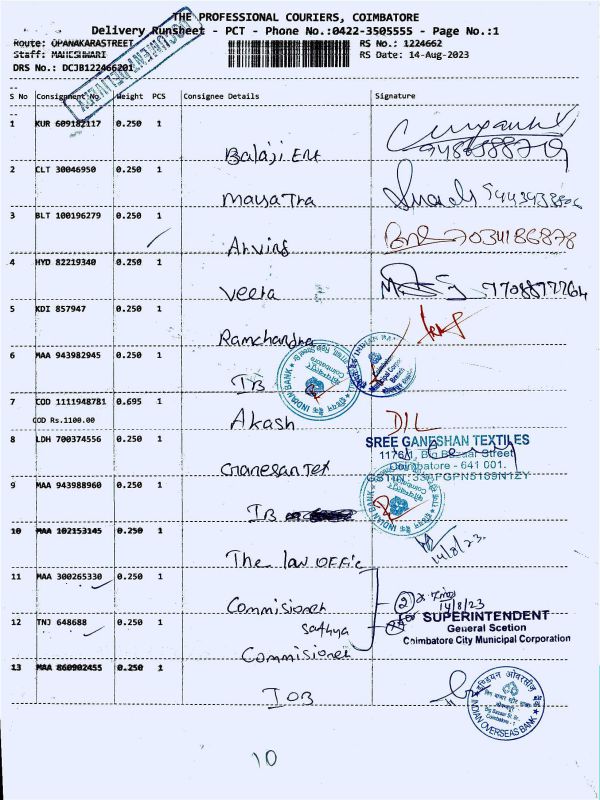 THE PROFESSIONAL COURIERS, COIMBATORE
Delivery Runsheet - PCT - Phone No.:0422-3505555 - Page No.:1
Route: OPANAKARASTREET RS No.: 1224662
Staff: MAHESHWARI RS Date: 14-Aug-2023
DRS No.: DCJB122466201
S No Consignment No. Weight PCS Consignee Details Signature
1 KUR 609182117 0.250 1 Balaji Ent
2 CLT 30046950 0.250 1 Mayatra
3 BLT 100196279 0.250 1 Arving 7034186878
4 HYD 82219340 0.250 1 Veeta
5 KDI 857947 0.250 1 Ramchandra
6 MAA 943982945 0.250 1 IB
INDIAN BANK
7 COD 1111948781 0.695 1 Akash DIL
COD Rs.1100.00
8 LDH 700374556 0.250 1 Ganesan Tex
SREE GANESHAN TEXTILES
1176/1, Big Bazaar Street
Coimbatore - 641 001.
GSTIN: 33AFGPN5169N1ZY
9 MAA 943988960 0.250 1 IB
INDIAN BANK
10 MAA 102153145 0.250 1 The law office
14/8/23.
11 MAA 300265330 0.250 1 Commisioner
2
14/8/23
Sathya
12 TNJ 648688 0.250 1 Commisioner
SUPERINTENDENT
General Scetion
Coimbatore City Municipal Corporation
13 MAA 860902455 0.250 1 IOB
इण्डियन ओवरसीज़
INDIAN OVERSEAS BANK
10